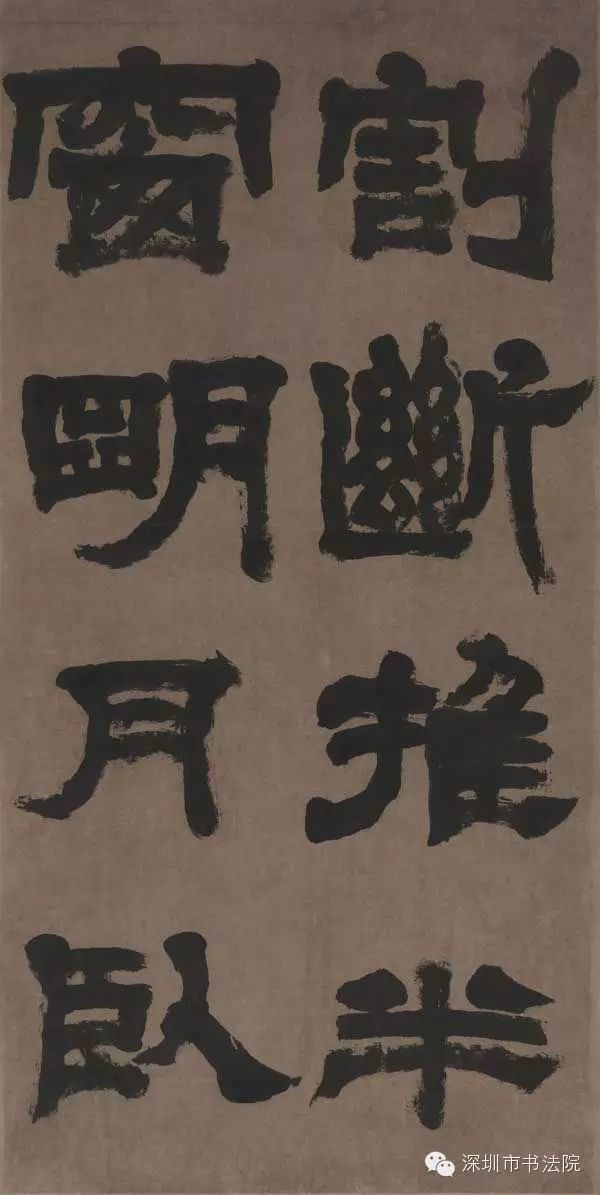 割斷推半
窗明月臥
深圳市书法院